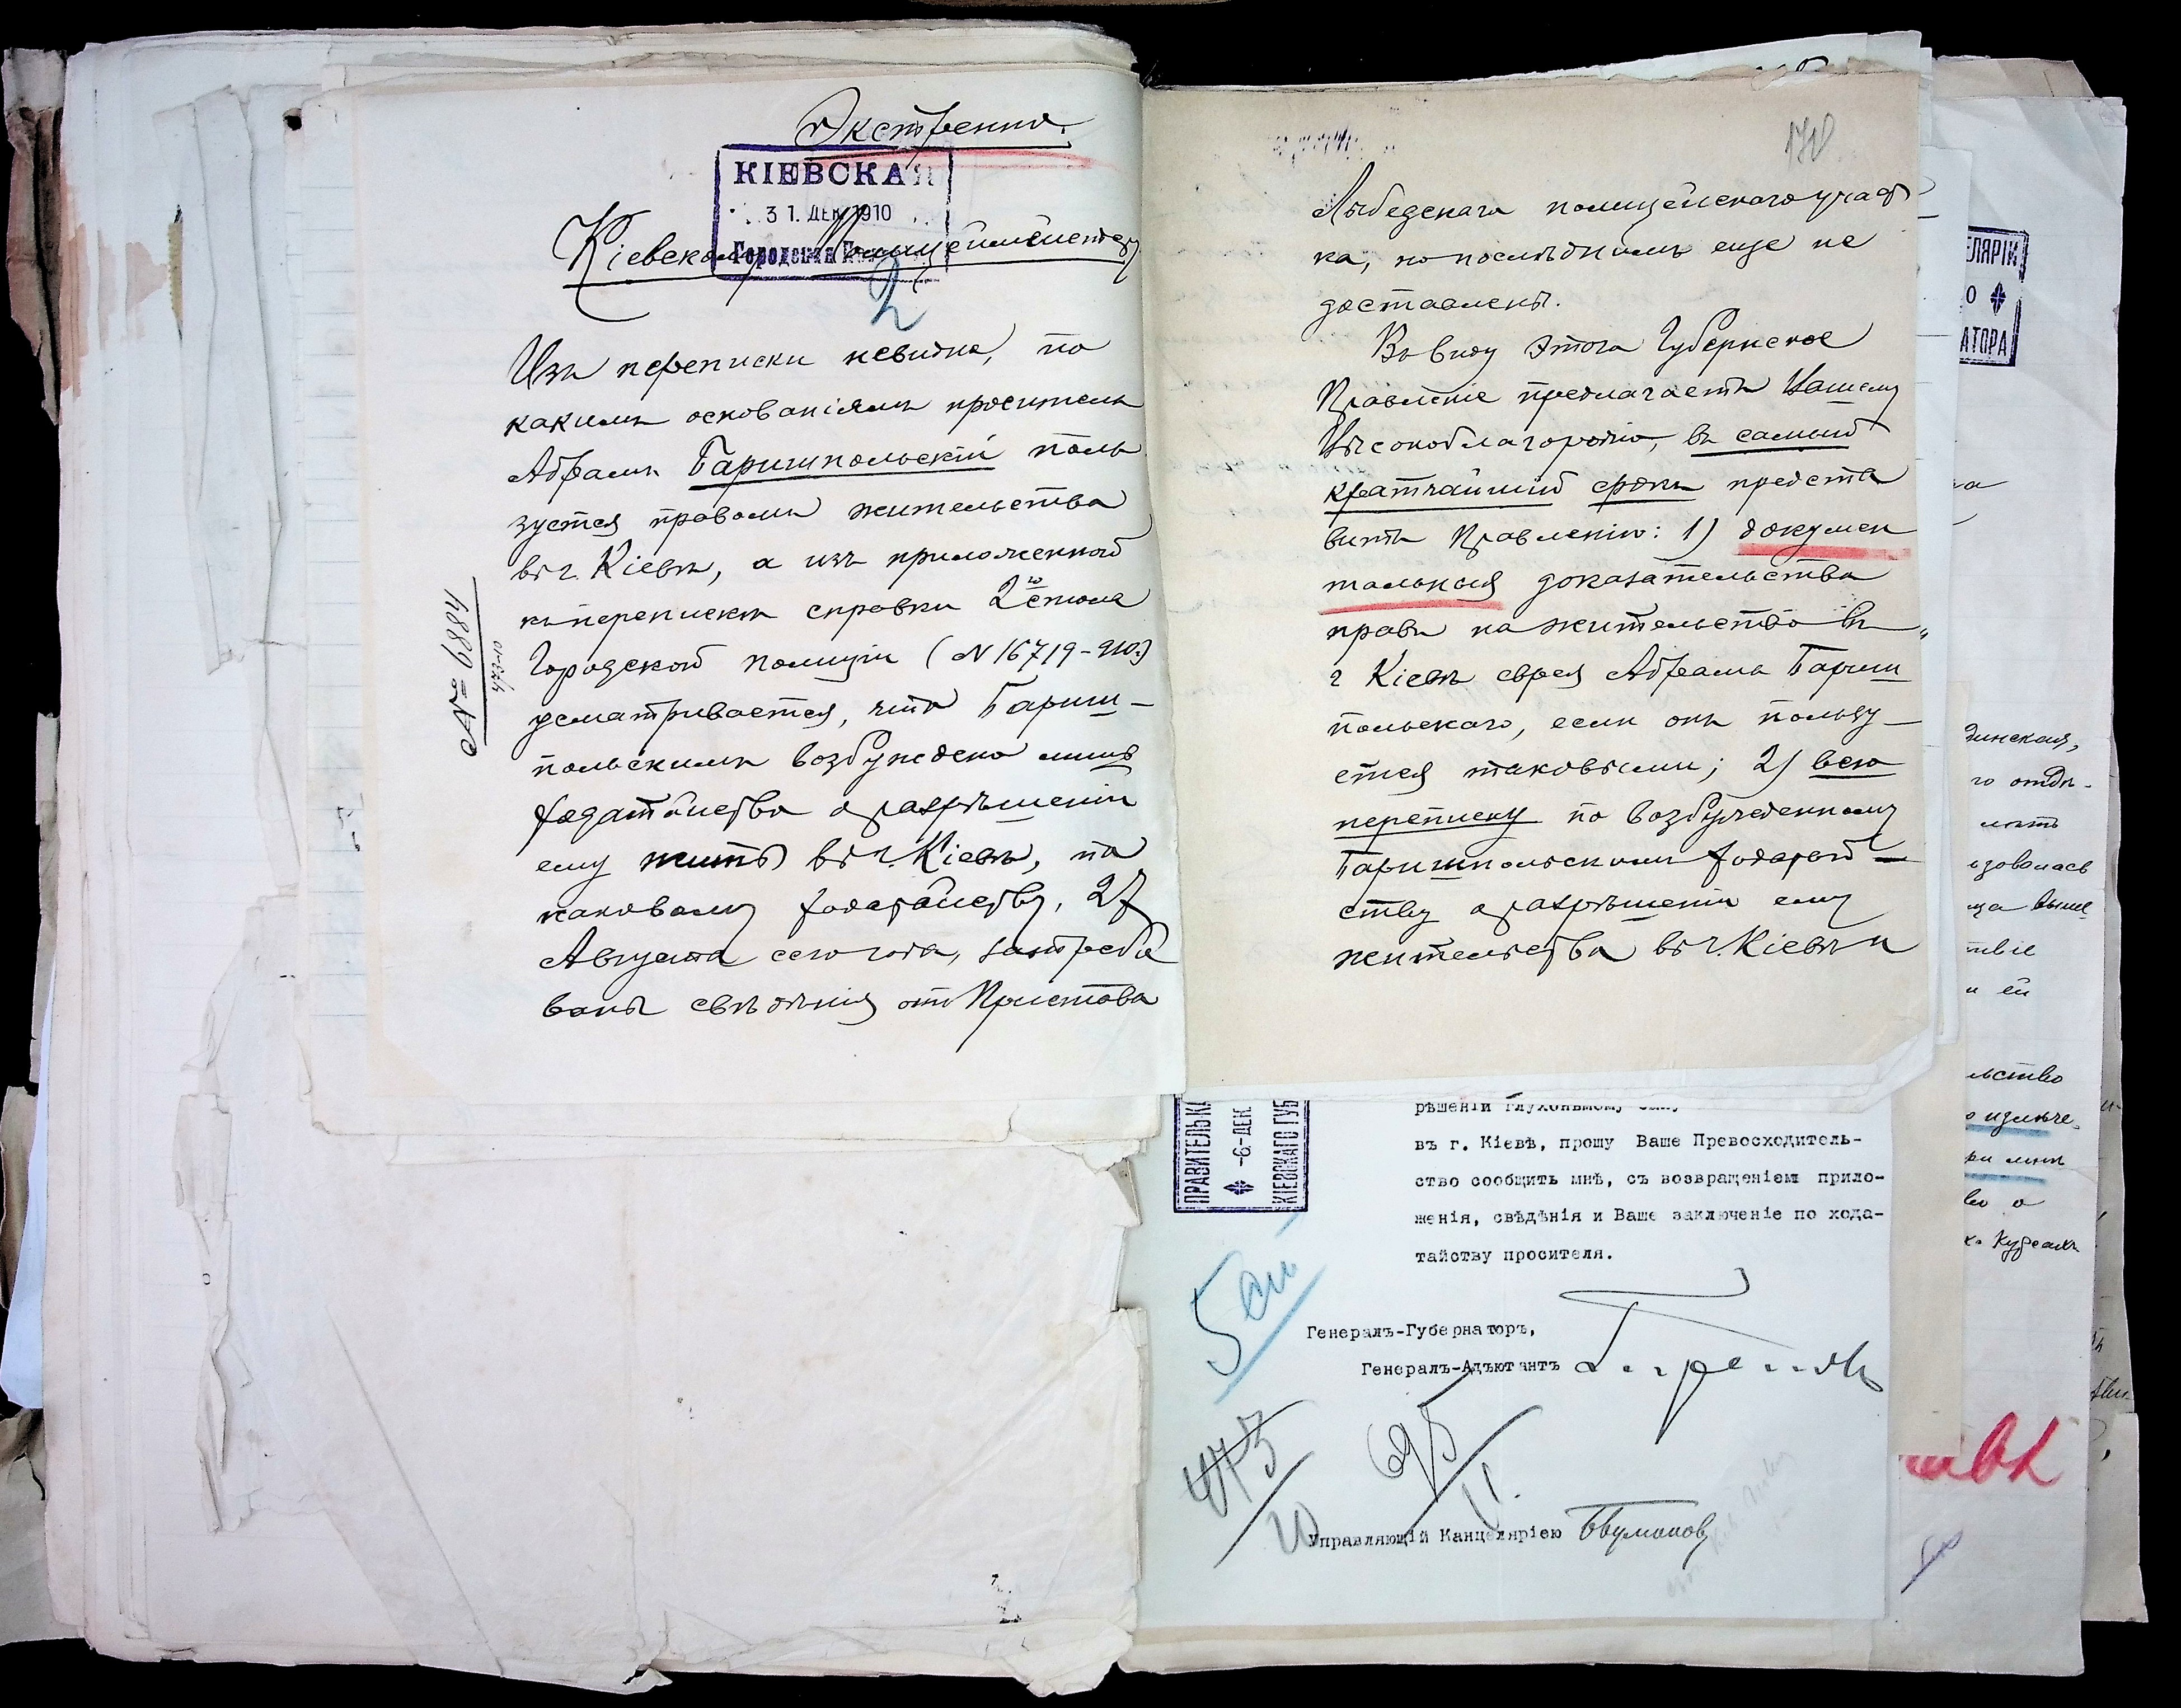 Экстренно.
КІЕВСКАЯ
31. ДЕК 1910
Городская
Кіевскому Полицеймейстеру
2
Изъ переписки невидно, по
какимъ основаніямъ проситель
Абрамъ Баришпольскій поль
зуется правомъ жительства
въ г. Кіевѣ, а изъ приложенной
къ перепискѣ справки 2го стола
Городской полиціи (N 16719-910г.)
усматривается, что Бариш-
польскимъ возбуждено лишь
ходатайство о разрѣшеніи
ему жить въ г. Кіевѣ, по
каковому ходатайству, 27
Августа сего года, затребо
ваны свѣдѣнія отъ Пристава
№ 6884
473-10
Лыбедскаго полицейскаго участ
ка, но послѣднимъ еще не
доставлены.
Въ виду этого Губернское
Правленіе предлагаетъ Вашему
Высокоблагородію, въ самый
кратчайшій срокъ предста
вить Правленію: 1) докумен
тальныя доказательства
права на жительство въ
г Кіевѣ еврея Абрама Бариш
польскаго, если онъ пользу-
ется таковыми; 2) всю
переписку по возбужденному
Баришпольскимъ ходатай-
ству о разрѣшеніи ему
жительства въ г. Кіевѣ и
ЕЛЯРІИ
О
АТОРА
динская,
го отдѣ-
лать
изовалась
ца выше
твіе
и ей
льство
о излѣче-
ри мнѣ
во о
х. Курсахъ
ПРАВИТЕЛЬ КА
-6-ДЕК
КІЕВСКАГО ГУБ
рѣшеніи глухонѣмому
въ г. Кіевѣ, прошу Ваше Превосходитель-
ство сообщить мнѣ, съ возвращеніемъ прило-
женія, свѣдѣнія и Ваше заключеніе по хода-
тайству просителя.
5 ст
Генералъ-Губернаторъ,
Генералъ-Адъютантъ
473
10
695
11.
Управляющій Канцеляріею